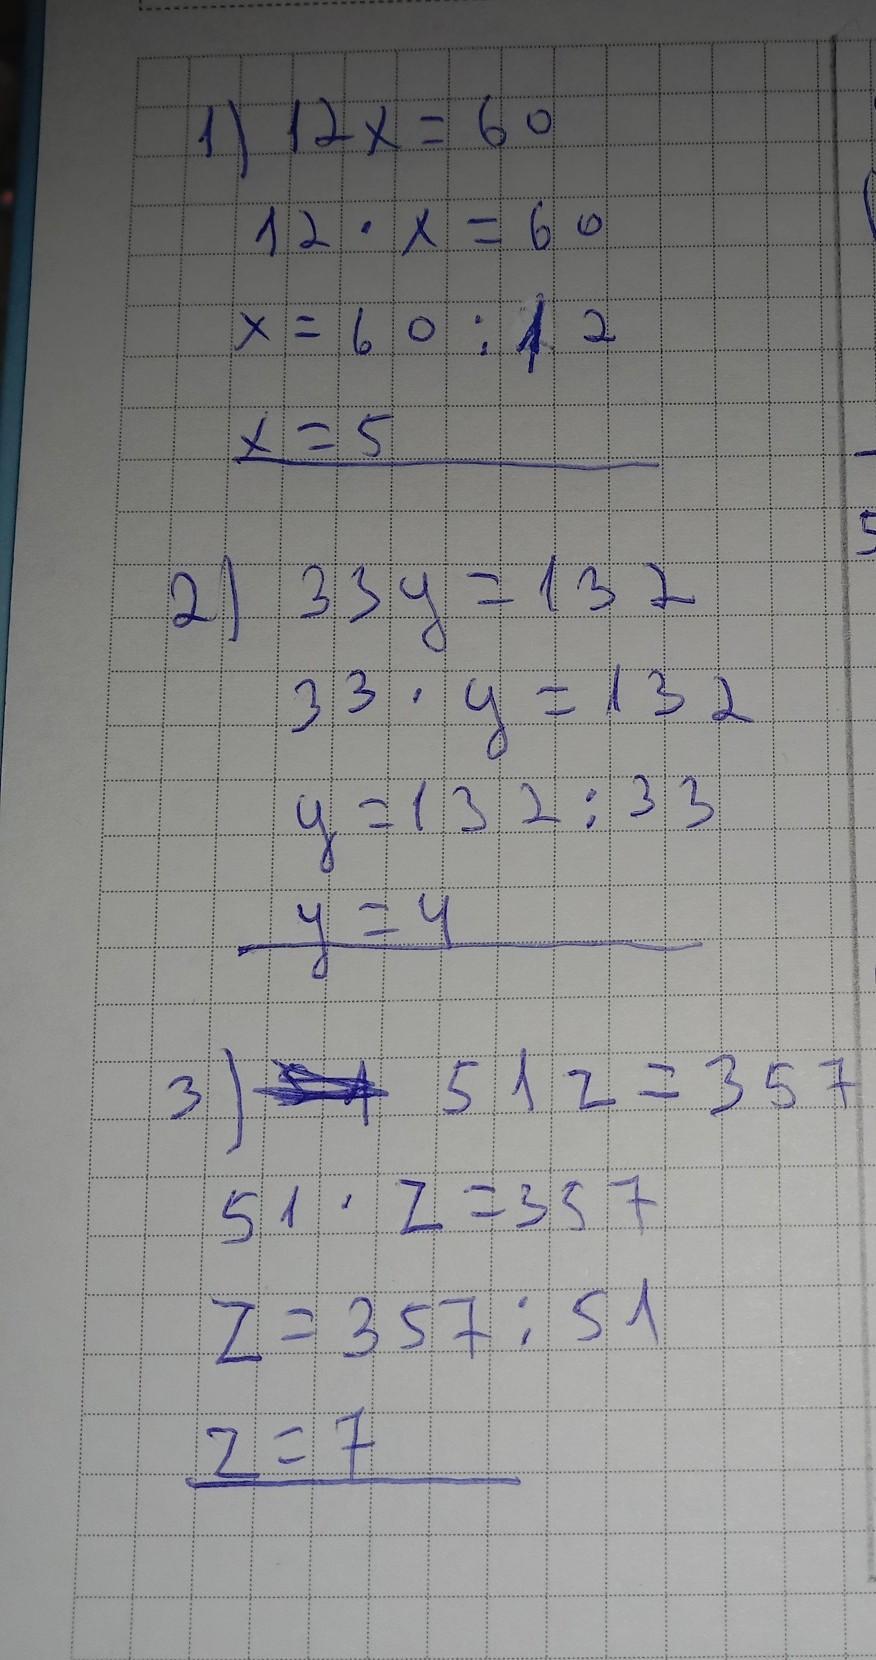 1) 12x = 60
12 · x = 60
x = 60 : 12
x = 5
2) 33y = 132
33 · y = 132
y = 132 : 33
y = 4
3) 51z = 357
51 · z = 357
z = 357 : 51
z = 7